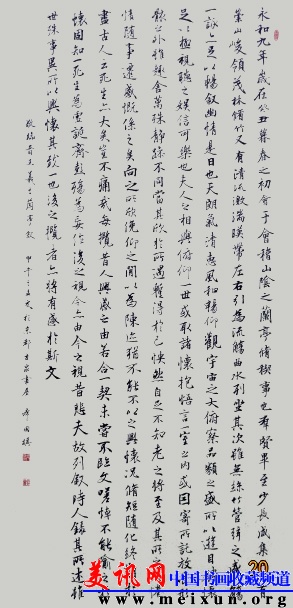 永和九年歲在癸丑暮春之初會于會稽山陰之蘭亭脩禊事也羣賢畢至少長咸集此地有
崇山峻領茂林脩竹又有清流激湍暎帶左右引以為流觴曲水列坐其次雖無絲竹管弦之盛一觴
一詠亦足以暢叙幽情是日也天朗氣清惠風和暢仰觀宇宙之大俯察品類之盛所以遊目騁懷
足以極視聽之娛信可樂也夫人之相與俯仰一世或取諸懷抱悟言一室之內或因寄所託放浪形
骸之外雖趣舍萬殊靜躁不同當其欣於所遇暫得於己怏然自足不知老之將至及其所之既惓
情隨事遷感慨係之矣向之所欣俛仰之間以為陳迹猶不能不以之興懷況脩短隨化終期於
盡古人云死生亦大矣豈不痛哉每攬昔人興感之由若合一契未嘗不臨文嗟悼不能喻之於
懷固知一死生為虛誕齊彭殤為妄作後之視今亦由今之視昔悲夫故列叙時人錄其所述雖
世殊事異所以興懷其致一也後之攬者亦將有感於斯文
敬臨晉王羲之蘭亭敘
美讯网 中国书画收藏频道
www.meixun.org